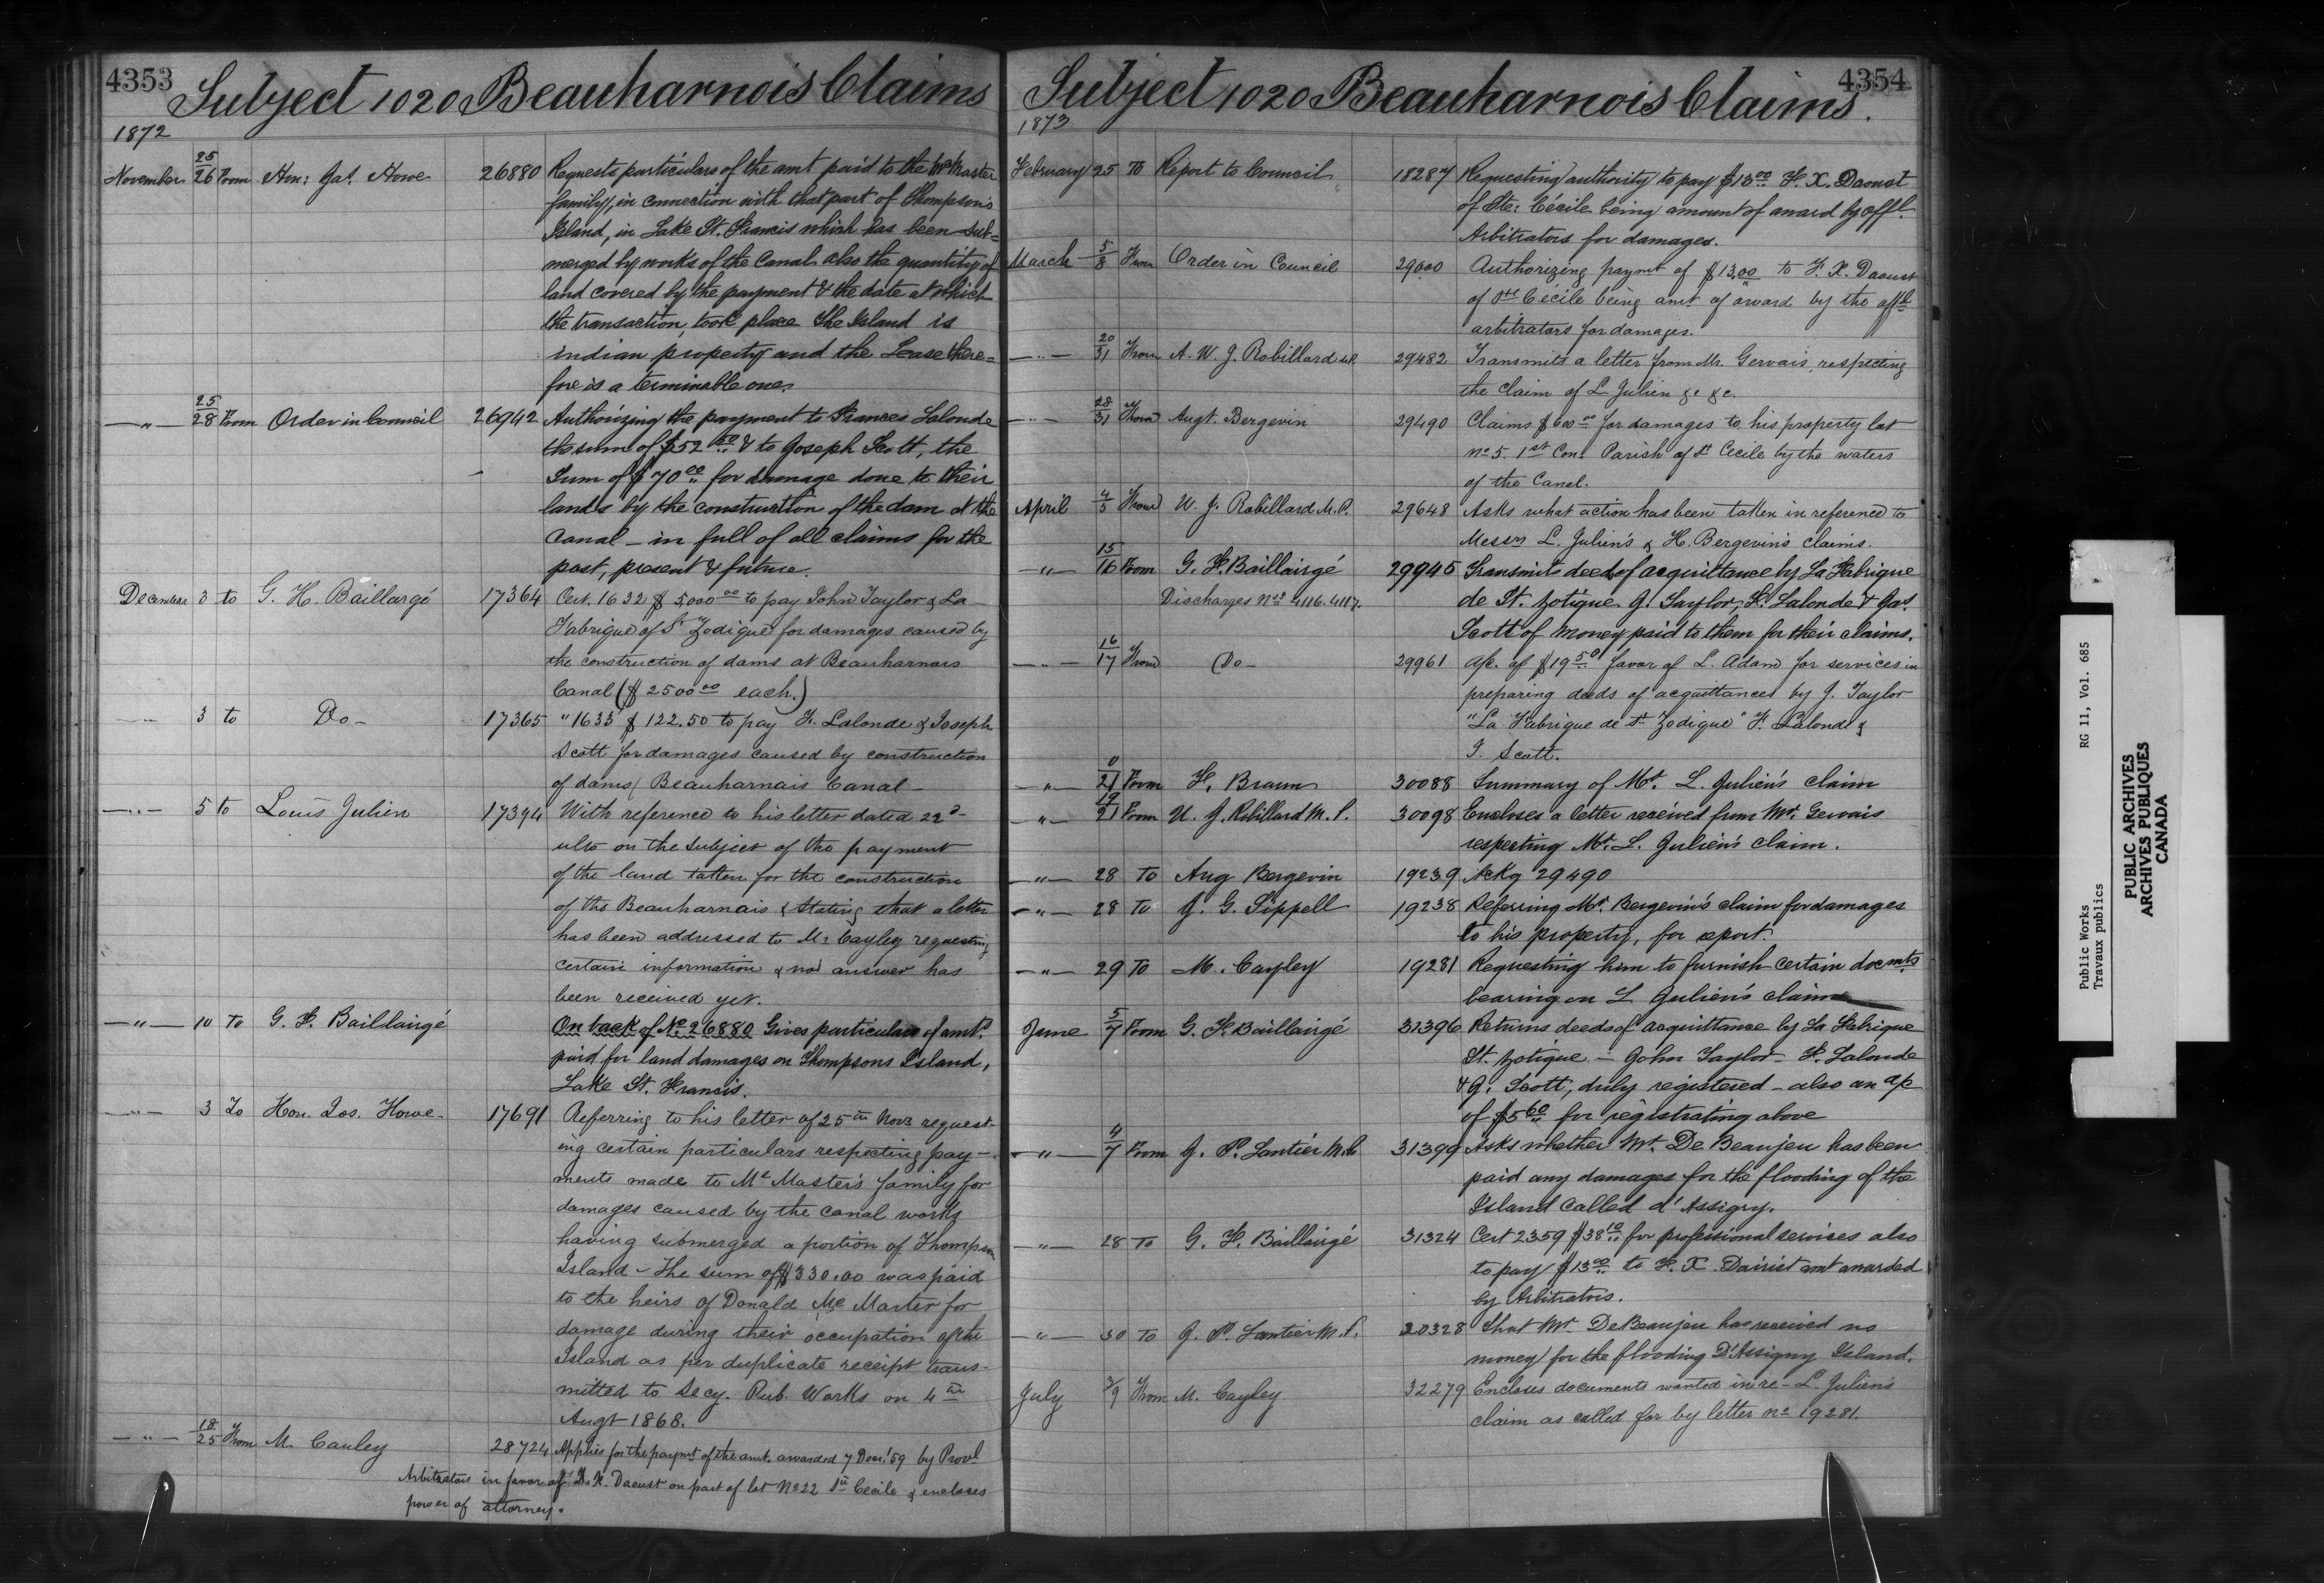 4353
Subject 1020 Beauharnois Claims
1872
November 25/26 From Hon: Jas. Howe 26880 Requests particulars of the amt paid to the McMaster
family, in connection with that part of Thompson's
Island, in Lake St. Francis which has been sub=
merged by works of the Canal also the quantity of
land covered by the payment & the date at which
the transaction, took place The Island is
indian property and the Lease there=
fore is a terminable one.
—"— 25/28 From Order in Council 26942 Authorizing the payment to Frances Lalonde
the sum of $52 50 & to Joseph Scott, the
Sum of $70 00 for damage done to their
lands by the construction of the dam at the
Canal — in full of all claims for the
past, present & future.
December 3 to G. H. Baillargé 17364 Cert. 1632 $ 5,000 00 to pay John Taylor & La
Fabrique of St Zodique for damages caused by
the construction of dams at Beauharnois
Canal ($ 2500 00 each.)
—"— 3 to Do — 17365 " 1633 $ 122.50 to pay F. Lalonde & Joseph
Scott for damages caused by construction
of dams, Beauharnais Canal —
—"— 5 to Louis Julien 17394 With reference to his letter dated 22d
ulto on the subject of the payment
of the land taken for the construction
of the Beauharnais & Stating that a letter
has been addressed to Mr Cayley requesting
certain information & no answer has
been received yet.
—"— 10 To G. F. Baillairgé On back of No. 26880 Gives particulars of amt.
paid for land damages on Thompsons Island,
Lake St. Francis.
—"— 3 To Hon. Jos. Howe 17691 Referring to his letter of 25th Novr request-
ing certain particulars respecting pay—
ments made to McMaster's family for
damages caused by the canal works
having submerged a portion of Thompson
Island — The sum of $330.00 was paid
to the heirs of Donald McMaster for
damage during their occupation of the
Island as per duplicate receipt trans-
mitted to Secy. Pub. Works on 4th
Augt 1868.
—"— 18/25 From M. Cauley 28724 Applies for the paymt of the amt. awarded 7 Decr. '59 by Provl
Arbitrators in favor of D. X. Daoust on part of lot No 22 Ste Cecile & encloses
power of attorney.
4354
Subject 1020 Beauharnois Claims.
1873
February 25 To Report to Council 18287 Requesting authority to pay $13 00 F. X. Daoust
of Ste: Cécile being amount of award by offl.
Arbitrators for damages.
March 5/8 From Order in Council 29000 Authorizing paymt of $13.00 to F. X. Daoust
of Ste Cécile being amt of award by the offl
arbitrators for damages.
—"— 20/31 From A. W. J. Robillard 29482 Transmits a letter from Mr. Gervais, respecting
the claim of L Julien &c &c.
—"— 28/31 From Augt. Bergevin 29490 Claims $600 00 for damages to his property lot
no 5. 1st Con. Parish of St Cecile by the waters
of the Canal.
April 4/5 From W. J. Robillard M.P. 29648 Asks what action has been taken in reference to
Messrs L. Julien's & H. Bergevin's claims.
—"— 15/16 From G. F. Baillairgé 29945 Transmits deed of acquittance by La Fabrique
Discharges Nos 4116. 4117. de St. Zotique J. Taylor, F. Lalonde & Jas.
Scott of money paid to them for their claims.
—"— 16/17 From Do — 29961 a/c. of $19 50 favor of L. Adam for services in
preparing deeds of acquittances by J. Taylor
"La Fabrique de St Zodique" F. Lalonde &
J. Scott.
—"— 0/21 From F. Braun 30088 Summary of Mr. L. Julien's claim
—"— 19/21 From U. J. Robillard M.P. 30098 Encloses a letter received from Mr. Gervais
respecting Mr. L. Julien's claim.
—"— 28 To Aug Bergevin 19239 Ackg 29490
—"— 28 To J. G. Sippell 19238 Referring Mr. Bergevin's claim for damages
to his property, for report.
—"— 29 To M. Cayley 19281 Requesting him to furnish certain docmts
bearing on L Julien's claim
June 5/7 From G. F. Baillairgé 31396 Returns deeds of acquittance by La Fabrique
St. Zotique — John Taylor — F. Lalonde
& J. Scott, duly registered — also an a/c
of $5 60 for registrating above
—"— 4/7 From J. P. Lantier M.P. 31399 Asks whether Mr. De Beaujeu has been
paid any damages for the flooding of the
Island called d'Assigny.
—"— 28 To G. F. Baillairgé 31324 Cert 2359 $38 10 for professional services also
to pay $13 00 to F. X. Dairist amt awarded
by Arbitrators.
—"— 30 To J. P. Lantier M.P. 20328 That Mr. DeBeaujeu has received no
money for the flooding D'Assigny Island.
July 3/9 From M. Cayley 32279 Encloses documents wanted in re — L. Julien's
claim as called for by letter no 19281.
Public Works RG 11, Vol. 685
Travaux publics
PUBLIC ARCHIVES
ARCHIVES PUBLIQUES
CANADA